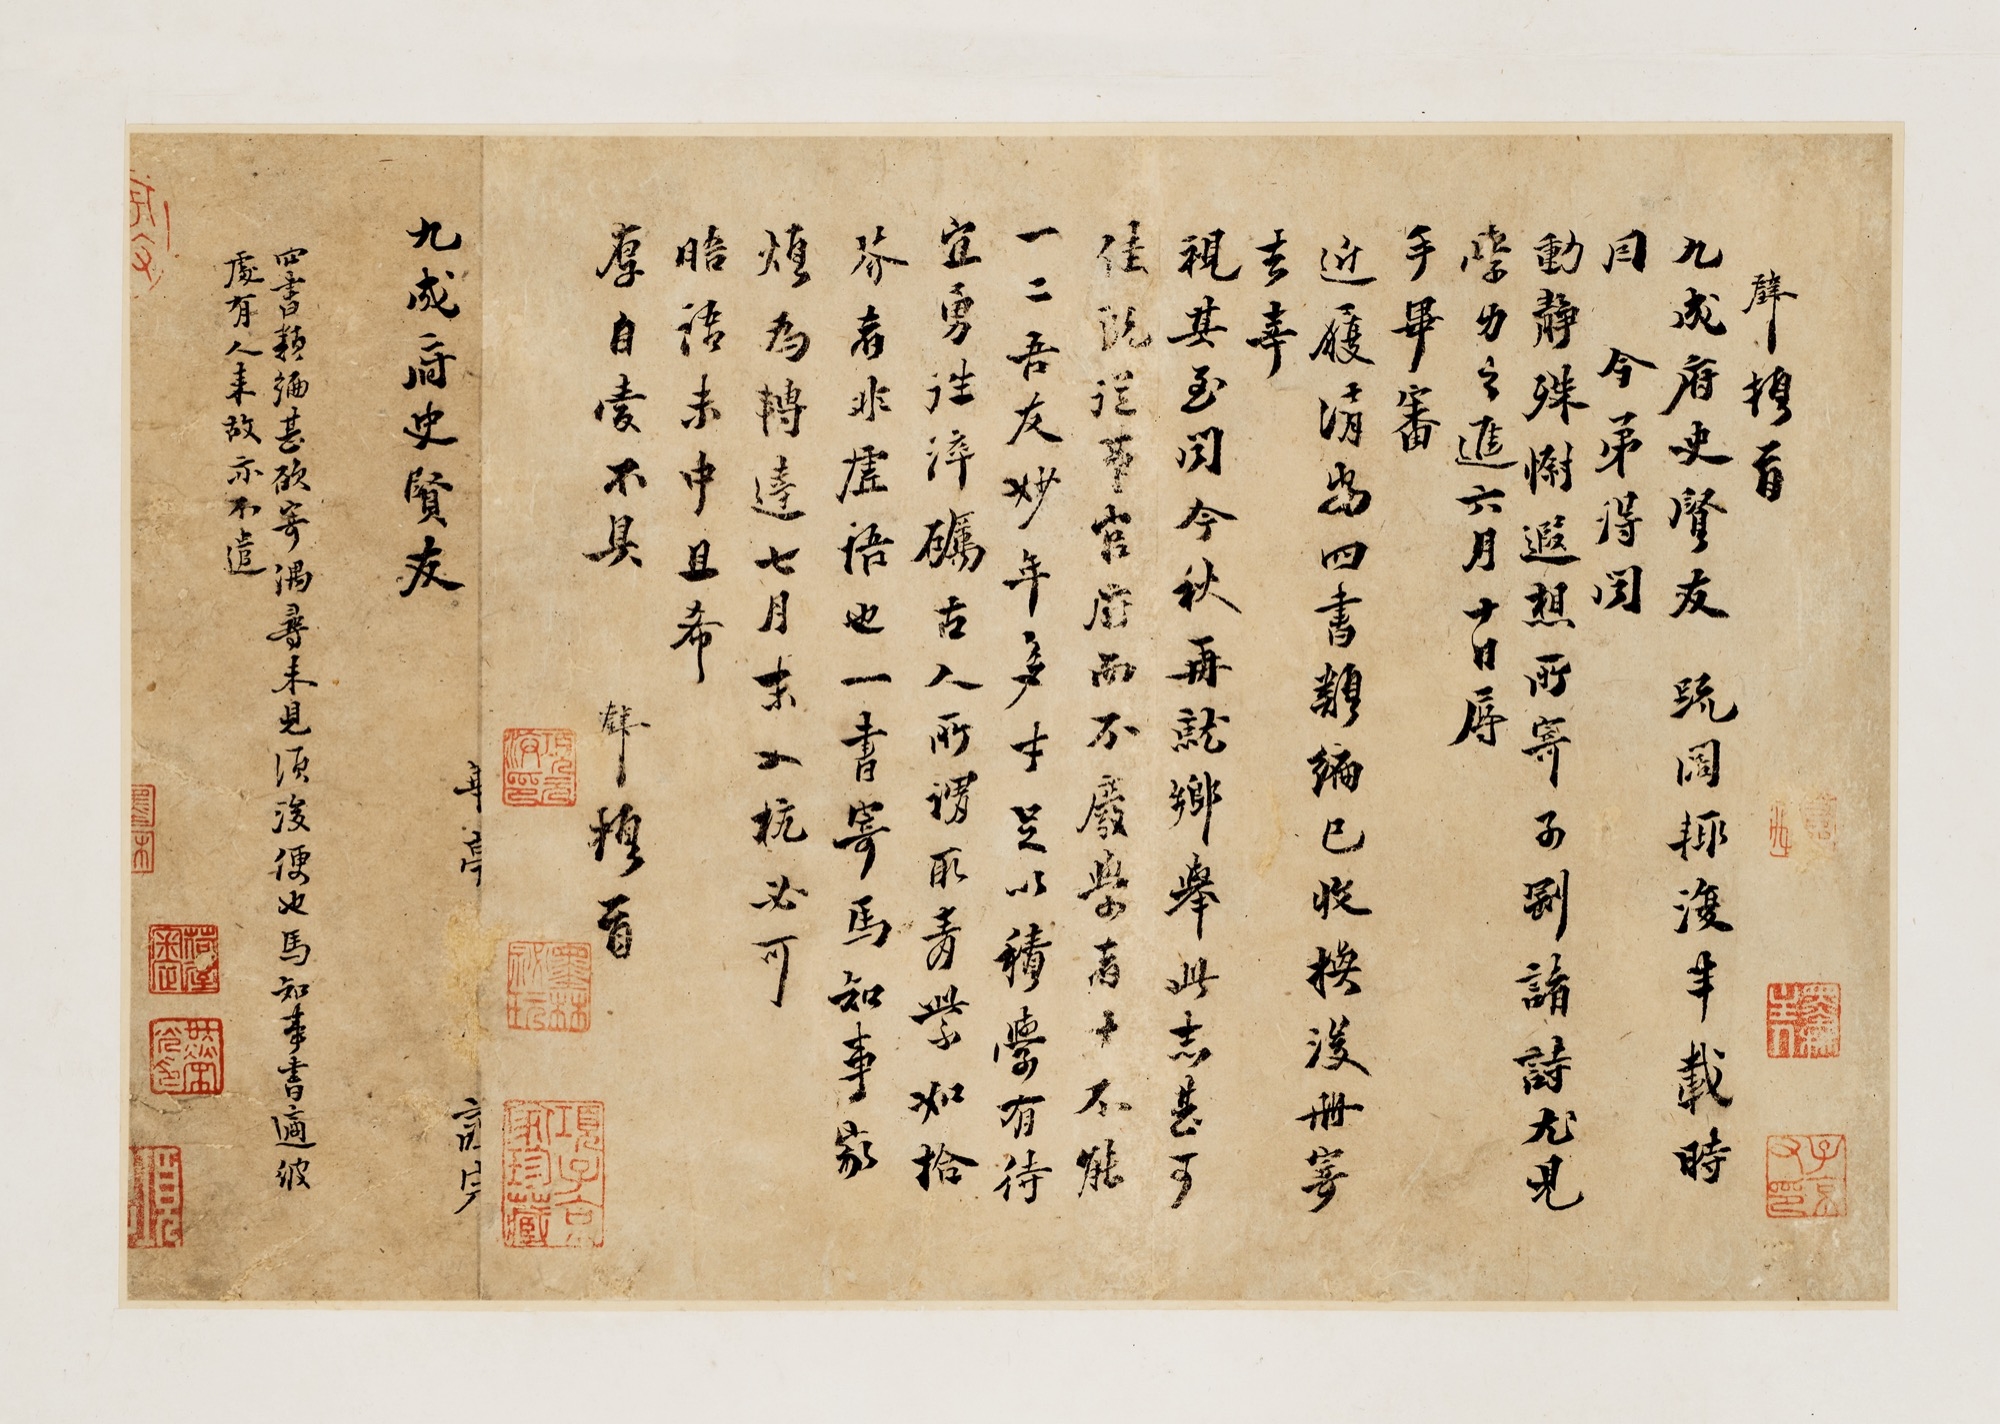 璧頓首
九成府史賢友 疏闊輒復半載時
月 令弟得聞
動靜殊慰遐想所寄子剛諸詩尤見
學力之進六月十日辱
手畢審
近履清
四書類編已收換後冊寄
去幸
視其至聞今秋再就鄉舉此志甚可
佳況從事官府而不廢學者十不能
一二吾友妙年多才足以積學有待
宜勇往淬礪古人所謂取青紫如拾
芥者非虛語也一書寄馬知事家
煩為轉達七月末入杭必可
晤語未中且希
厚自愛不具
頓首
九成府史賢友
四書類編甚欲寄偶尋未見須後便也馬知事書適彼
處有人來故亦不遣
項子京家珍藏
墨林祕玩
子京父印